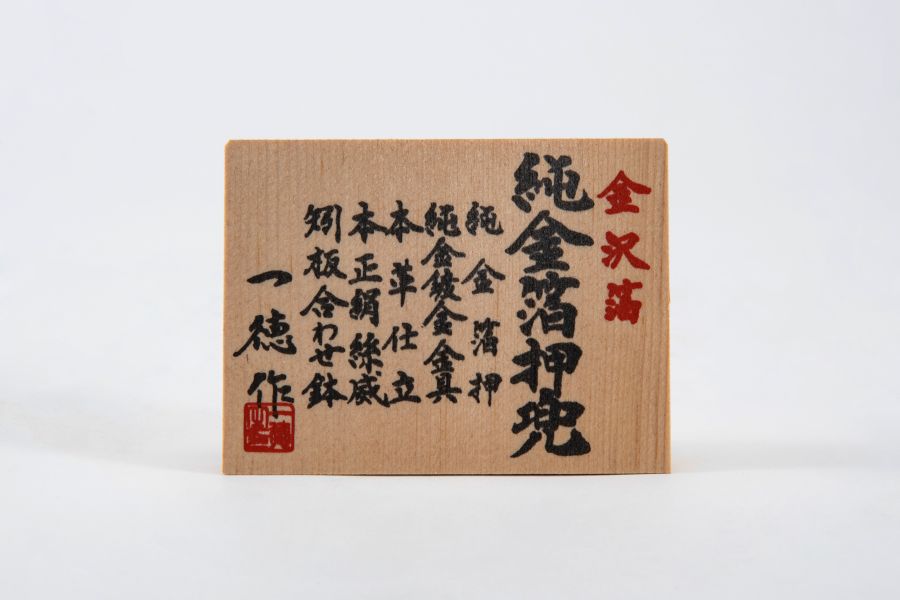 金沢箔
純金箔押兜
純金箔押
純金鍍金金具
本革仕立
本正絹絲威
矧板合わせ鉢
一徳作